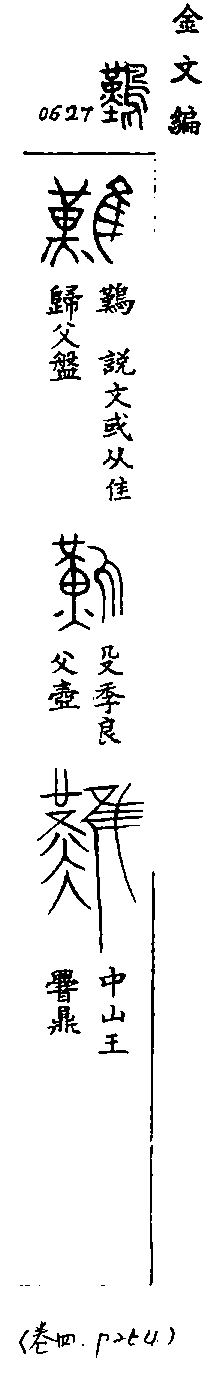 金文編
0627
𪄿 説文或从隹
歸父盤
殳季良
父壺
中山王
鼎
(卷四.